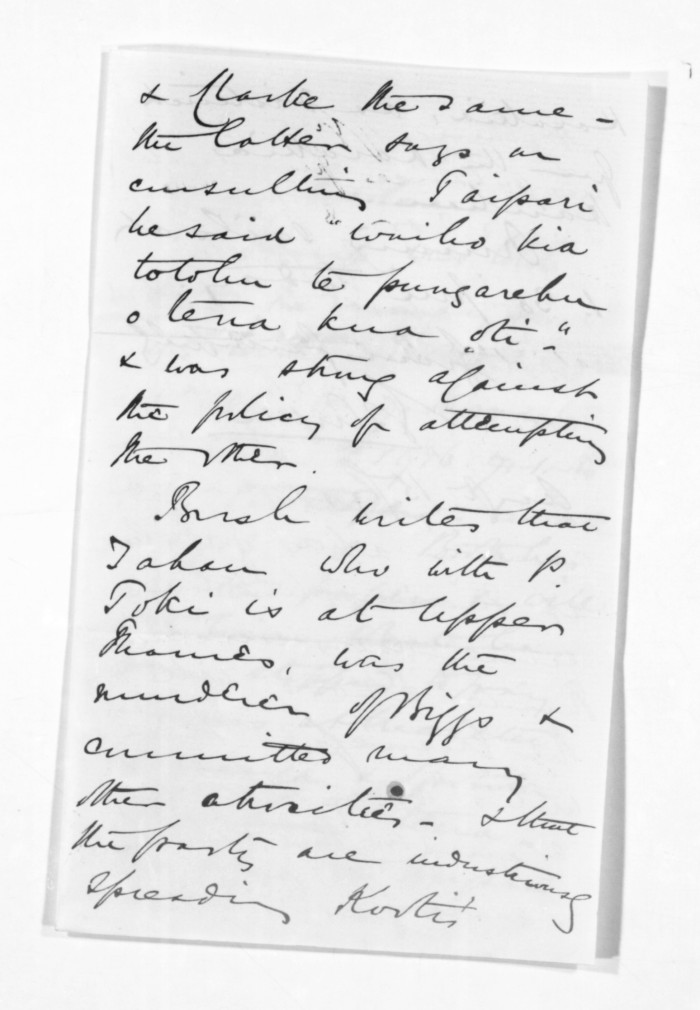 & Clarke the same -
the latter says on
consulting Taipari
he said "waiho kia
totohu te pungarehu
o tena kua oti" -
& was strong against
the policy of attempting
the other.
Bush writes that
Tahau who with P.
Toki is at Upper
Thames, was the
murderer of Biggs &
committed many
other atrocities - & that
the party are industriously
spreading